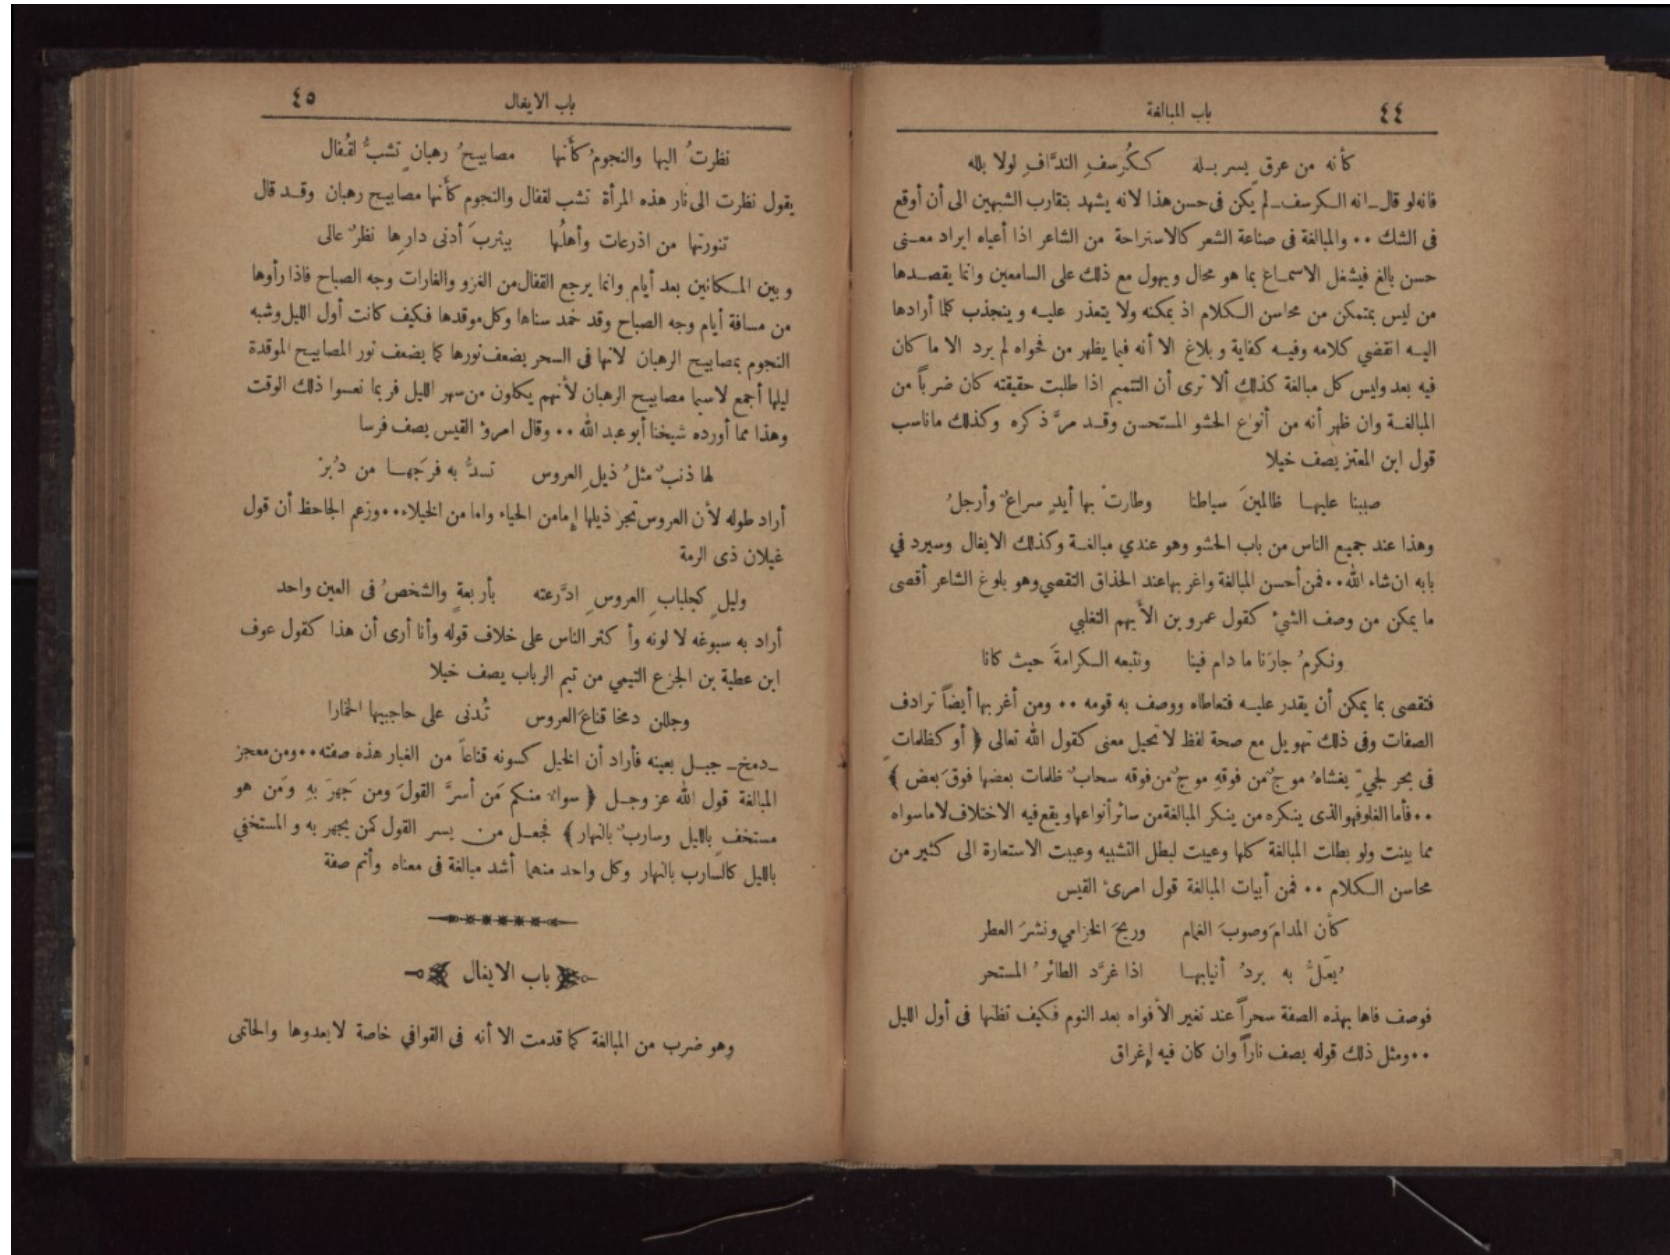 ٤٤
باب المبالغة
كأنه من عرق يسربله ككُرسفِ الندَّافِ لولا بلله
فانه لو قال ـ انه الكرسف ـ لم يكن فى حسن هذا لانه يشهد بتقارب الشبهين الى أن أوقع
فى الشك ٠٠ والمبالغة فى صناعة الشعر كالاستراحة من الشاعر اذا أعياه ايراد معنى
حسن بالغ فيشغل الاسماع بما هو محال ويهول مع ذلك على السامعين وانما يقصدها
من ليس بمتمكن من محاسن الكلام اذ يمكنه ولا يتعذر عليه وينجذب كلما أرادها
اليه انقضي كلامه وفيه كفاية وبلاغ الا أنه فيما يظهر من فحواه لم يرد الا ما كان
فيه بعد وليس كل مبالغة كذلك ألا ترى أن التتميم اذا طلبت حقيقته كان ضرباً من
المبالغة وان ظهر أنه من أنواع الحشو المستحسن وقد مرَّ ذكره وكذلك ماناسب
قول ابن المعتز يصف خيلا
صببنا عليها ظالمينَ سياطنا وطارتْ بها أيدٍ سراعٌ وأرجلُ
وهذا عند جميع الناس من باب الحشو وهو عندي مبالغة وكذلك الايغال وسيرد في
بابه ان شاء الله ٠٠ فمن أحسن المبالغة واغربها عند الحذاق التقصي وهو بلوغ الشاعر أقصى
ما يمكن من وصف الشئ كقول عمرو بن الأيهم التغلبي
ونكرمُ جارَنا ما دام فينا ونتبعه الكرامةَ حيث كانا
فتقصى بما يمكن أن يقدر عليه فتعاطاه ووصف به قومه ٠٠ ومن أغربها أيضاً ترادف
الصفات وفى ذلك تهويل مع صحة لفظ لا تحيل معنى كقول الله تعالى ﴿ أو كظلماتٍ
فى بحر لجيٍّ يغشاهُ موجٌ من فوقهِ موجٌ من فوقه سحابٌ ظلمات بعضها فوقَ بعض ﴾
٠٠ فأما الغلو فهو الذى ينكره من ينكر المبالغة من سائر أنواعها ويقع فيه الاختلاف لا ماسواه
مما بينت ولو بطلت المبالغة كلها وعيبت لبطل التشبيه وعيبت الاستعارة الى كثير من
محاسن الكلام ٠٠ فمن أبيات المبالغة قول امرئ القيس
كأن المدامَ وصوبَ الغمام وريحَ الخزامي ونشرَ العطر
يُعَلُّ به بردُ أنيابها اذا غرَّد الطائرُ المستحر
فوصف فاها بهذه الصفة سحراً عند تغير الأفواه بعد النوم فكيف تظنها فى أول الليل
٠٠ ومثل ذلك قوله يصف ناراً وان كان فيه إغراق
باب الايغال
٤٥
نظرتُ اليها والنجومُ كأنها مصابيحُ رهبانٍ تشبُّ لقُفال
يقول نظرت الى نار هذه المرأة تشب لقفال والنجوم كأنها مصابيح رهبان وقد قال
تنورتها من اذرعات وأهلُها بيثربَ أدنى دارِها نظرٌ عالى
وبين المكانين بعد أيام وانما يرجع القفال من الغزو والغارات وجه الصباح فاذا رأوها
من مسافة أيام وجه الصباح وقد خمد سناها وكل موقدها فكيف كانت أول الليل وشبه
النجوم بمصابيح الرهبان لانها فى السحر يضعف نورها كما يضعف نور المصابيح الموقدة
ليلها أجمع لاسيما مصابيح الرهبان لأنهم يكلون من سهر الليل فربما نعسوا ذلك الوقت
وهذا مما أورده شيخنا أبو عبد الله ٠٠ وقال امرؤ القيس يصف فرسا
لها ذنبٌ مثلُ ذيلِ العروس تسدُّ به فرجَها من دُبرْ
أراد طوله لأن العروس تجر ذيلها إما من الحياء واما من الخيلاء ٠٠ وزعم الجاحظ أن قول
غيلان ذى الرمة
وليلٍ كجلبابِ العروسِ ادَّرعته بأربعةٍ والشخصُ فى العين واحد
أراد به سبوغه لا لونه وأكثر الناس على خلاف قوله وأنا أرى أن هذا كقول عوف
ابن عطية بن الجزع التيمي من تيم الرباب يصف خيلا
وجللن دمخا قناعَ العروس تُدنى على حاجبيها الخمارا
ـ دمخ ـ جبل بعينه فأراد أن الخيل كسونه قناعاً من الغبار هذه صفته ٠٠ ومن معجز
المبالغة قول الله عز وجل ﴿ سواء منكم مَن أسرَّ القولَ ومن جَهرَ بهِ ومَن هو
مستخفٍ بالليل وساربٌ بالنهار ﴾ فجعل من يسر القول كمن يجهر به والمستخفي
بالليل كالسارب بالنهار وكل واحد منهما أشد مبالغة فى معناه وأتم صفة
باب الايغال
وهو ضرب من المبالغة كما قدمت الا أنه فى القوافي خاصة لايعدوها والحاتمى